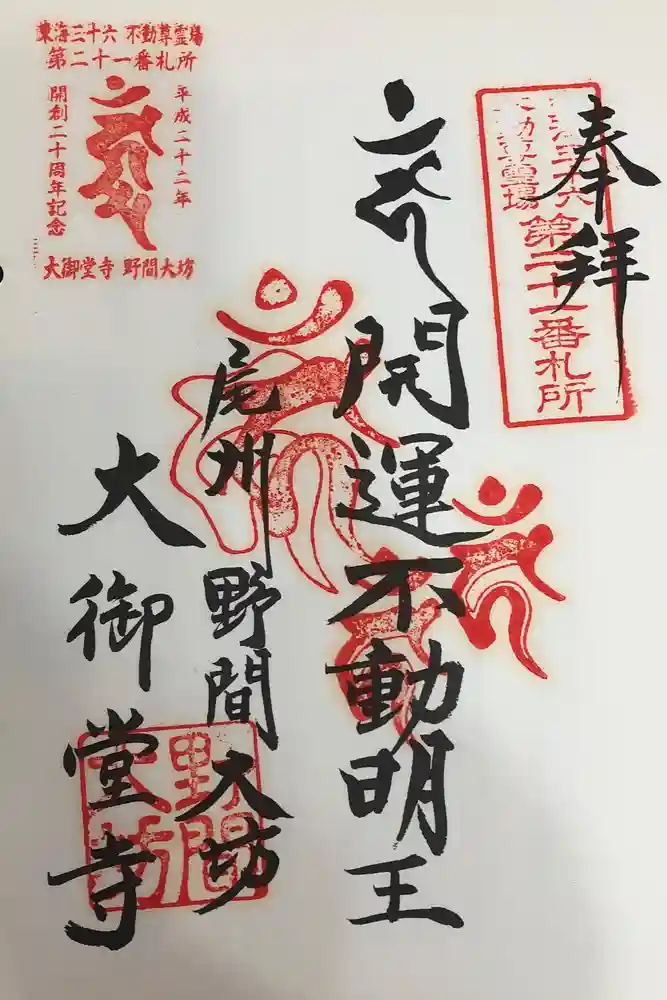 奉拝
東海三十六
不動尊霊場
第二十一番札所
開運不動明王
尾州野間大坊
大御堂寺
東海三十六 不動尊霊場
第二十一番札所
平成二十二年
開創二十周年記念
大御堂寺 野間大坊
野間
大坊